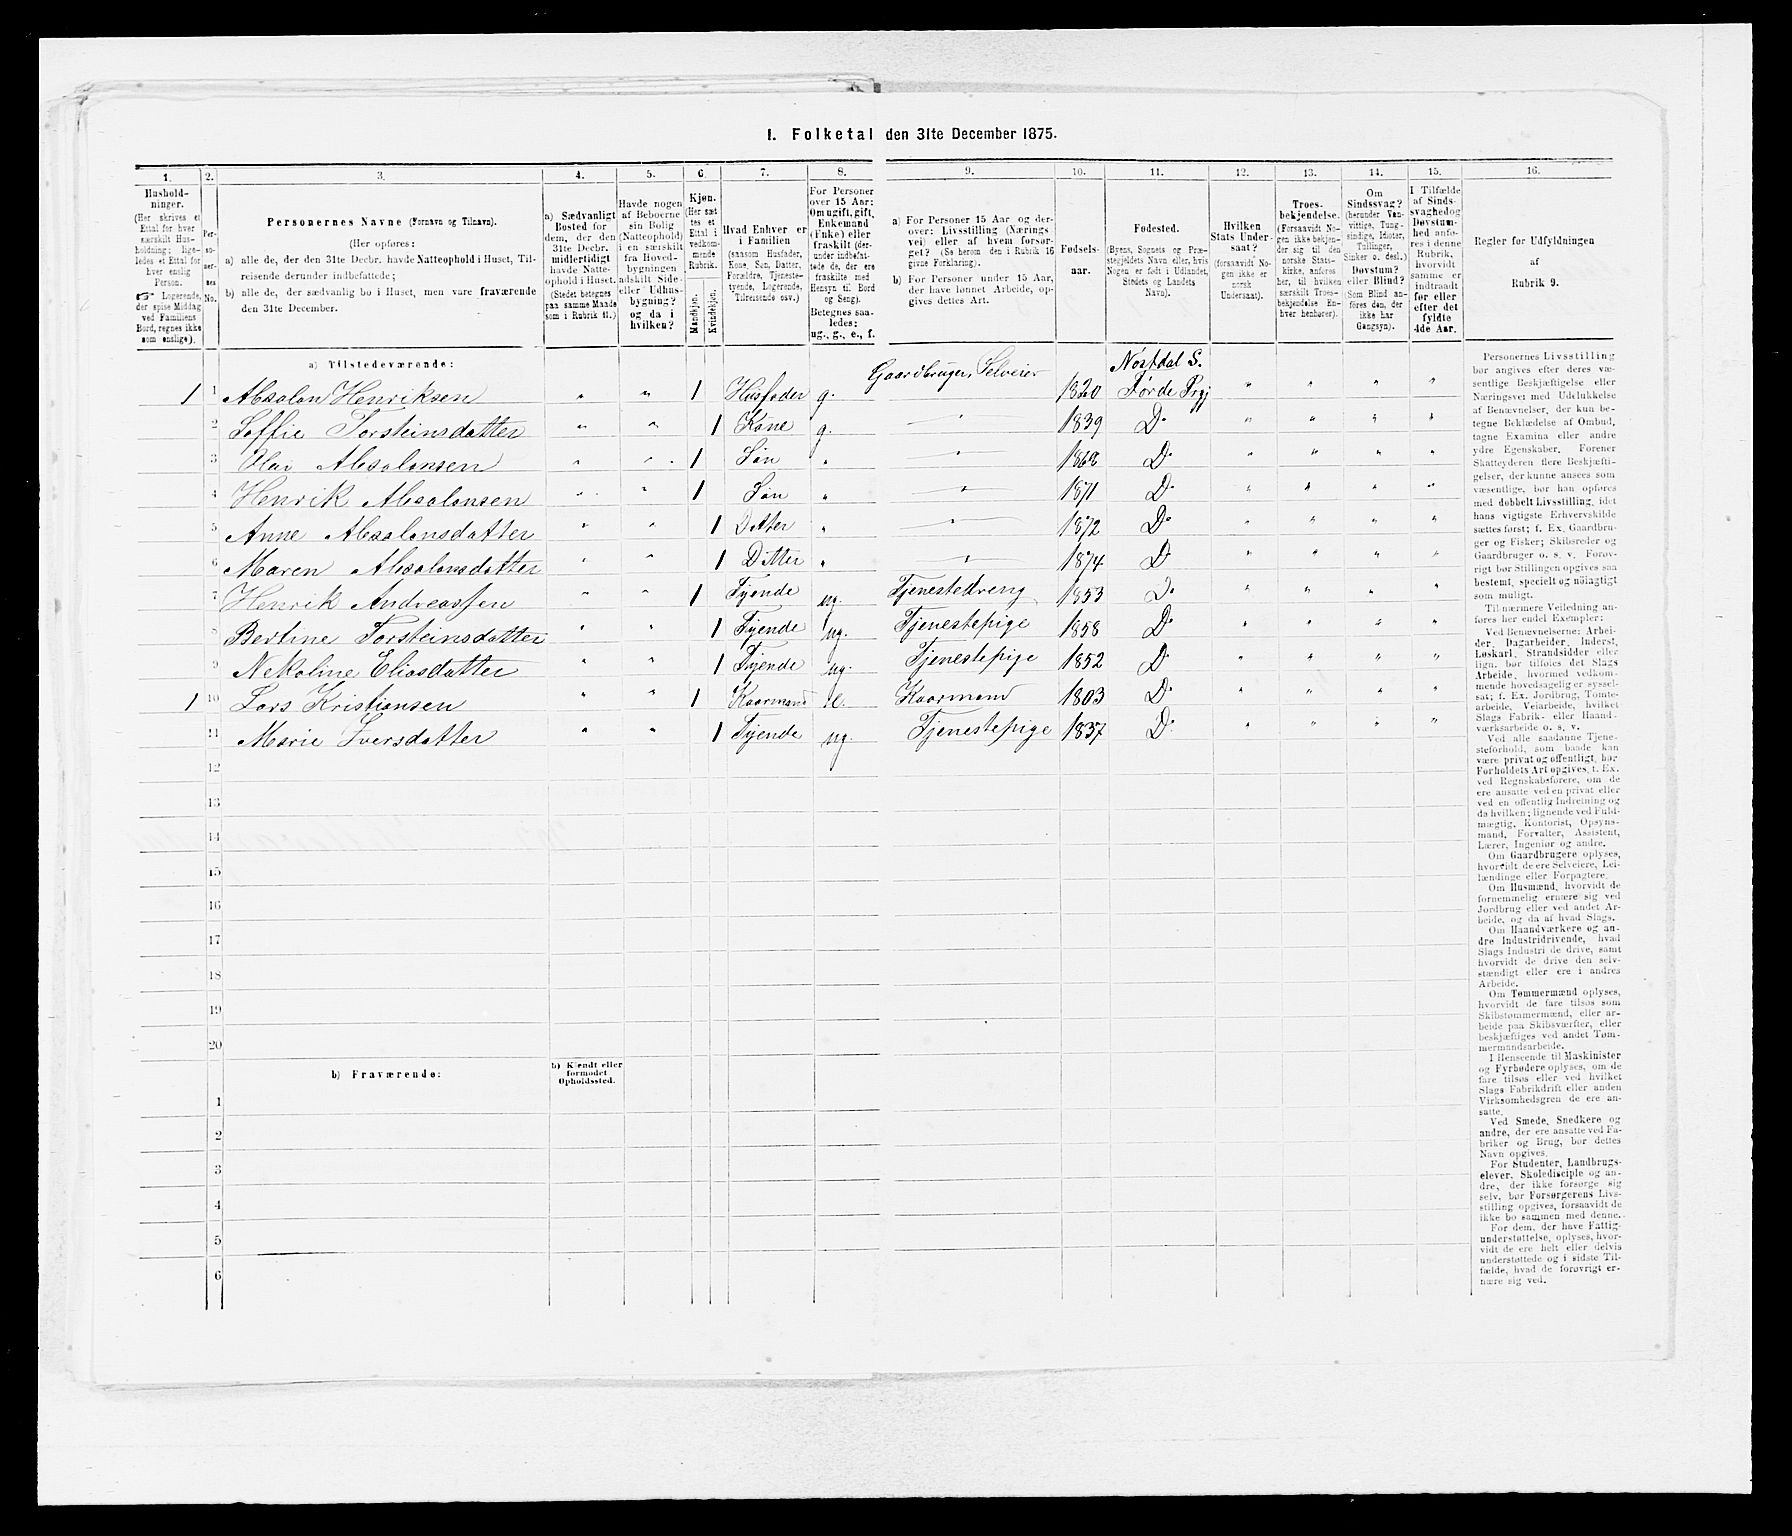 I. Folketal den 31te December 1875.
1. 2. 3. 4. 5. 6. 7. 8. 9. 10. 11. 12. 13. 14. 15. 16.
Husholdninger.
(Her skrives et
Ettal for hver
særskilt Husholdning; ligeledes et Ettal for
hver enslig
Person.
☞ Logerende,
der spise Middag
ved Familiens
Bord, regnes ikke
som enslige).
Personernes No.
Personernes Navne (Fornavn og Tilnavn).
(Her opføres:
a) alle de, der den 31te Decbr. havde Natteophold i Huset, Tilreisende derunder indbefattede;
b) alle de, der sædvanlig bo i Huset, men vare fraværende
den 31te December.
a) Sædvanligt
Bosted for
dem, der den
31te Decbr.
midlertidigt
havde Natteophold i Huset.
(Stedet betegnes
paa samme Maade
som i Rubrik 11.)
Havde nogen
af Beboerne
sin Bolig
(Natteophold)
i en særskilt
fra Hovedbygningen
adskilt Side-
eller Udhusbygning?
og da i
hvilken?
Kjøn.
(Her sættes et
Ettal i
vedkommende
Rubrik.
Mandkjøn.
Kvindekjøn.
Hvad Enhver er
i Familien
(saasom Husfader,
Kone, Søn, Datter,
Forældre, Tjenestetyende, Logerende,
Tilreisende osv.)
For Personer
over 15 Aar:
Om ugift, gift,
Enkemand
(Enke) eller
fraskilt (derunder indbefattede de, der ere
fraskilte med
Hensyn til Bord
og Seng).
Betegnes saaledes:
ug., g., e., f.
a) For Personer 15 Aar og derover: Livsstilling (Næringsvei) eller af hvem forsørget? (Se herom den i Rubrik 16
givne Forklaring).
b) For Personer under 15 Aar,
der have lønnet Arbeide, opgives dettes Art.
Fødselsaar.
Fødested.
(Byens, Sognets og Præstegjeldets Navn eller, hvis
Nogen er født i Udlandet,
Stedets og Landets
Navn).
Hvilken
Stats Undersaat?
(forsaavidt Nogen ikke er
norsk
Undersaat).
Troesbekjendelse.
(Forsaavidt Nogen ikke bekjender sig til den
norske Statskirke, anføres
her, til hvilken
særskilt Troesbekjendelse Enhver henhører).
Om
Sindssvag?
(herunder Vanvittige, Tungsindige, Idioter,
Tullinger,
Sinker o. desl.)
Døvstum?
eller Blind?
(Som Blind anføres den, der
ikke har
Gangsyn).
I Tilfælde
af Sindssvaghed og
Døvstumhed anføres i denne
Rubrik,
hvorvidt
samme er
indtraadt
før eller
efter det
fyldte
4de Aar.
Regler for Udfyldningen
af
Rubrik 9.
a) Tilstedeværende:
Gaardbruger, Selveier Nøstdal S.
1 1 Absalon Henriksen " " 1 Husfader g. 1820 Førde Prgj " " " "
2 Soffie Torsteinsdatter " " 1 Kone g. " 1839 Do " " " "
3 Abesalonsen " " 1 Søn " " 1868 Do " " " "
4 Henrik Abesalonsen " " 1 Søn " " 1871 Do " " " "
5 Anne Abesalonsdatter " " 1 Datter " " 1872 Do " " " "
6 Maren Abesalonsdatter " " 1 Datter " " 1874 Do " " " "
7 Henrik Andreassen " " 1 Tyende ug. Tjenestedreng 1853 Do " " " "
8 Bertine Torsteinsdatter " " 1 Tyende ug. Tjenestepige 1858 Do " " " "
9 Nekoline Eliasdatter " " 1 Tyende ug. Tjenestepige 1852 Do " " " "
1 10 Lars Kristiansen " " 1 Kaarmand e. Kaarmand 1803 Do " " " "
11 Marie Iversdatter " " 1 Tyende ug. Tjenestepige 1837 Do " " " "
12
13
14
15
16
17
18
19
20
b) Fraværende:
b) Kjendt eller
formodet
Opholdssted.
1
2
3
4
5
6
Personernes Livsstilling
bør angives efter deres væsentlige Beskjæftigelse eller
Næringsvei med Udelukkelse
af Benævnelser, der kun betegne Beklædelse af Ombud,
tagne Examina eller andre
ydre Egenskaber. Forener
Skatteyderen flere Beskjæftigelser, der kunne ansees som
væsentlige, bør han opføres
med dobbelt Livsstilling, idet
hans vigtigste Erhvervskilde
sættes først; f. Ex. Gaardbruger og Fisker; Skibsreder og
Gaardbruger o. s. v. Forøvrigt bør Stillingen opgives saa
bestemt, specielt og nøiagtigt
som muligt.
Til nærmere Veiledning anføres her endel Exempler:
Ved Benævnelserne: Arbeider, Dagarbeider, Inderst,
Løskarl, Strandsidder eller
lign. bør tilføies det Slags
Arbeide, hvormed vedkommende hovedsagelig er sysselsat; f. Ex. Jordbrug, Tomtearbeide, Veiarbeide, hvilket
Slags Fabrik- eller Haandværksarbeide o. s. v.
Ved alle saadanne Tjenesteforhold, som baade kan
være privat og offentligt, bør
Forholdets Art opgives, f. Ex.
ved Regnskabsførere, om de
ere ansatte ved en privat eller
ved en offentlig Indretning og
da hvilken; lignende ved Fuldmægtig, Kontorist, Opsynsmand, Forvalter, Assistent,
Lærer, Ingeniør og andre.
Om Gaardbrugere oplyses,
hvorvidt de ere Selveiere, Leilændinge eller Forpagtere.
Om Husmænd, hvorvidt de
fornemmelig ernære sig ved
Jordbrug eller ved andet Arbeide, og da af hvad Slags.
Om Haandværkere og andre Industridrivende, hvad
Slags Industri de drive, samt
hvorvidt de drive den selvstændigt eller ere i andres
Arbeide.
Om Tømmermænd oplyses,
hvorvidt de fare tilsøs som
Skibstømmermænd, eller arbeide paa Skibsværfter, eller
beskjæftiges ved andet Tømmermandsarbeide.
I Henseende til Maskinister
og Fyrbødere oplyses, om de
fare tilsøs eller ved hvilket
Slags Fabrikdrift eller anden
Virksomhedsgren de ere ansatte.
Ved Smede, Snedkere og
andre, der ere ansatte ved Fabriker og Brug, bør dettes
Navn opgives.
For Studenter, Landbrugselever, Skoledisciple og andre, der ikke forsørge sig
selv, bør Forsørgerens Livsstilling opgives, forsaavidt de
ikke bo sammen med denne.
For dem, der have Fattigunderstøttelse, oplyses, hvorvidt de ere helt eller delvis
understøttede og i sidste Tilfælde, hvad de forøvrigt ernære sig ved.